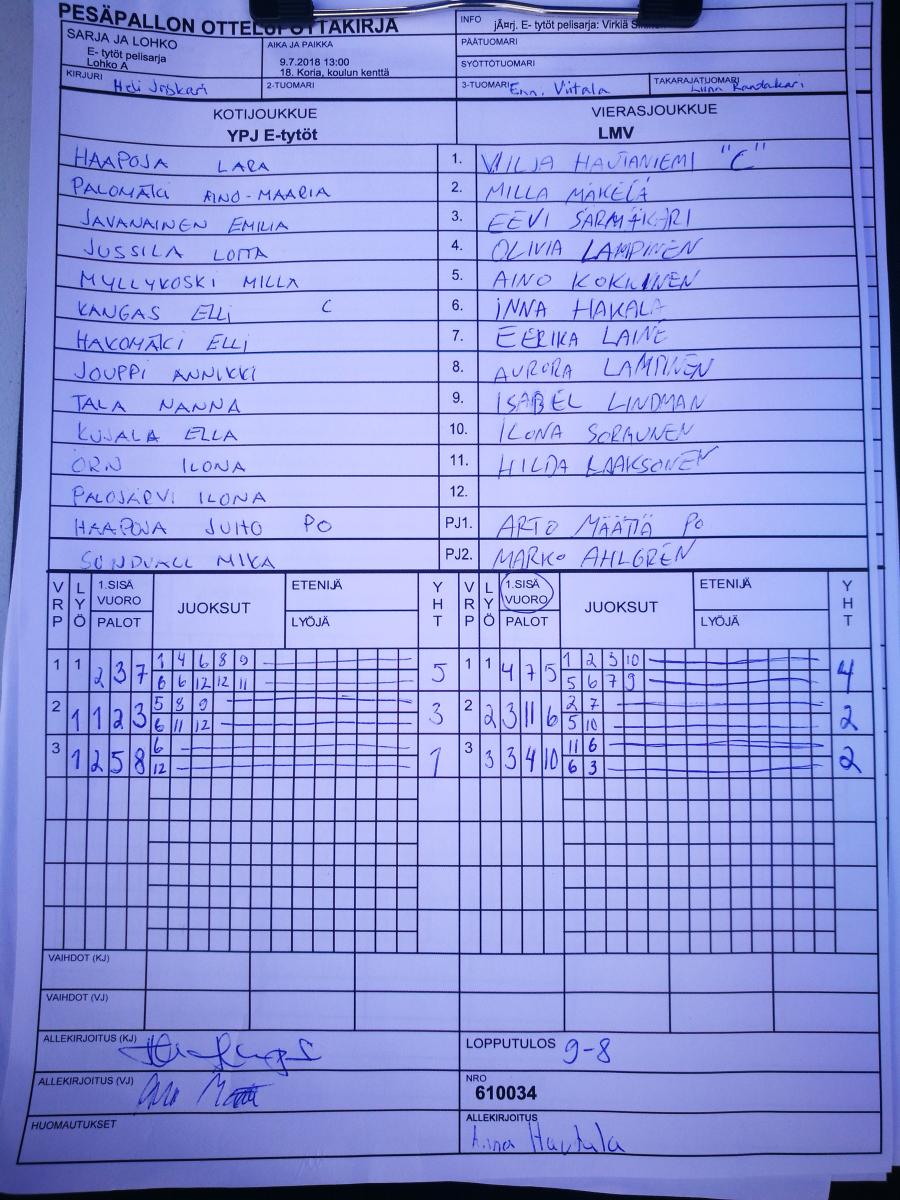 PESÄPALLON OTTELUPÖYTÄKIRJA
INFO jÃ¤rj. E- tytöt pelisarja: Virkiä
SARJA JA LOHKO
E- tytöt pelisarja
Lohko A
AIKA JA PAIKKA
9.7.2018 13:00
18. Koria, koulun kenttä
PÄÄTUOMARI
SYÖTTÖTUOMARI
KIRJURI Heli Joskari
2-TUOMARI
3-TUOMARI Enni Viitala
TAKARAJATUOMARI
KOTIJOUKKUE
YPJ E-tytöt
VIERASJOUKKUE
LMV
HAAPOJA LARA 1. VILJA HAUTANIEMI "C"
PALOMÄKI AINO-MAARIA 2. MILLA MÄKELÄ
JAVANAINEN EMILIA 3. EEVI SÄRMÄKARI
JUSSILA LOTTA 4. OLIVIA LAMPINEN
MYLLYKOSKI MILLA 5. AINO KOKKINEN
KANGAS ELLI C 6. INNA HAKALA
HAKOMÄKI ELLI 7. EERIKA LAINE
JOUPPI ANNIKKI 8. AURORA LAMPINEN
TALA NANNA 9. ISABEL LINDMAN
KUJALA ELLA 10. ILONA SORMUNEN
ÖRN ILONA 11. HILDA LAAKSONEN
PALOJÄRVI ILONA 12.
HAAPOJA JUHO PO PJ1. ARTO MÄÄTTÄ PO
SUNDVALL MIKA PJ2. MARKO AHLGREN
VRP LYÖ 1.SISÄ VUORO PALOT JUOKSUT ETENIJÄ LYÖJÄ YHT VRP LYÖ 1.SISÄ VUORO PALOT JUOKSUT ETENIJÄ LYÖJÄ YHT
1 1 2 3 7 1 4 6 8 9 5 1 1 4 7 5 1 2 3 10 4
6 6 12 12 11 5 6 7 9
2 1 1 2 3 5 8 9 3 2 2 3 11 6 2 7 2
6 11 12 5 10
3 1 2 5 8 6 1 3 3 3 4 10 11 6 2
12 6 3
VAIHDOT (KJ)
VAIHDOT (VJ)
ALLEKIRJOITUS (KJ)
LOPPUTULOS 9-8
ALLEKIRJOITUS (VJ)
NRO
610034
HUOMAUTUKSET
ALLEKIRJOITUS
Hautala